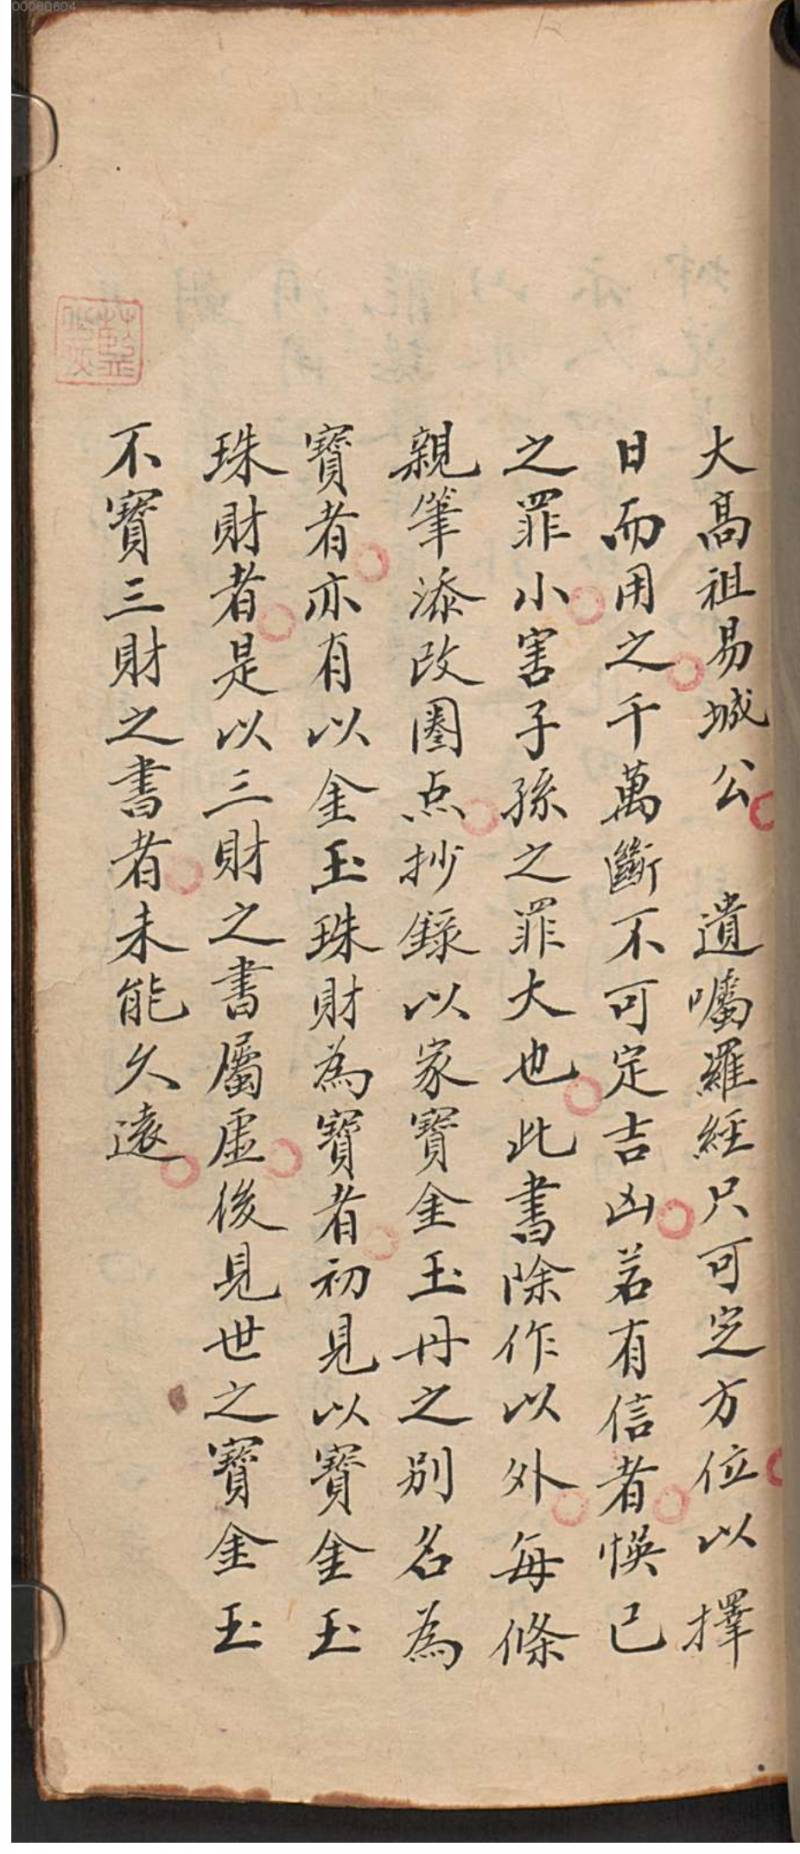 大高祖易城公　遺囑羅經只可定方位以擇
日而用之千萬斷不可定吉凶若有信者悮己
之罪小害子孫之罪大也此書除作以外每條
親筆添改圈点抄錄以家寶金玉丹之別名為
寶者亦有以金玉珠財為寶者初見以寶金玉
珠財者是以三財之書屬虛後見世之寶金玉
不寶三財之書者未能久遠
00060604